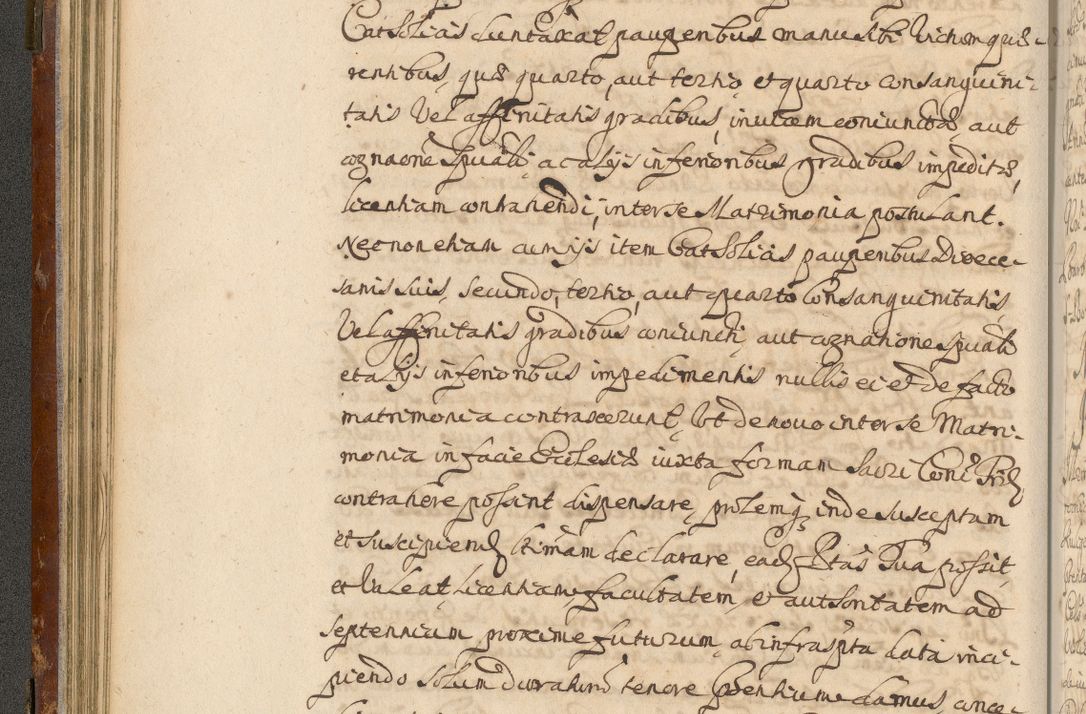 Catholicis duntaxat pauperibus manu sibi victum quæ-
rentibus, quæ quarto, aut tertio, et quarto consanguini-
tatis vel affinitatis gradibus, invicem coniunctæ, aut
cognaone spuali, ac alijs inferioribus gradibus impeditæ,
licentiam contrahendi, inter se Matrimonia postulant.
Necnon etiam cum ijs item Catholicis pauperibus Diœce-
sanis suis, secundo, tertio, aut quarto Consanguinitatis,
Vel affinitatis gradibus coniuncti, aut cognatione spuali
et alijs inferioribus impedimentis nullis et de facto
matrimonia contraxerunt, Ut de novo inter se Matri-
monia in facie Ecclesiæ iuxta formam Sacri Conc Trid
contrahere possint dispensare, prolemq inde susceptam
et suscipiend ltimam declarare, ead Ptas Tua possit,
et Valeat, licentiam, facultatem, et authoritatem ad
septennium proxime futurum, ab infrapta data inci-
piendo solum duraturū tenore Pntium damus, conce-